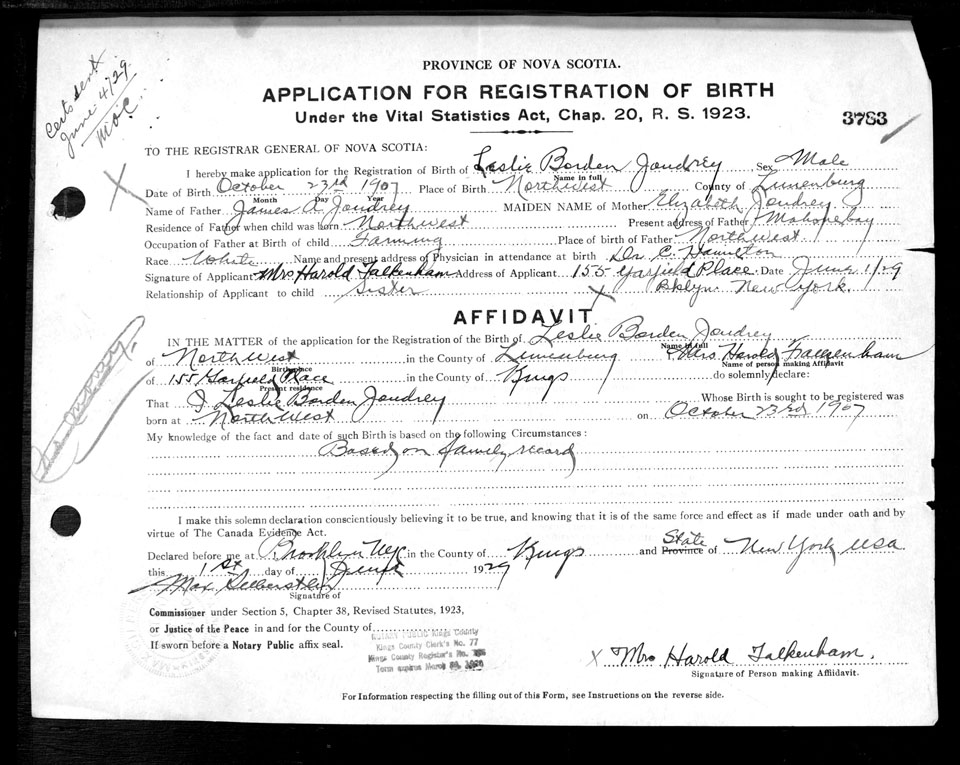 Certs sent
June 4/29.
MOC
PROVINCE OF NOVA SCOTIA.
APPLICATION FOR REGISTRATION OF BIRTH
Under the Vital Statistics Act, Chap. 20, R. S. 1923.
3783
TO THE REGISTRAR GENERAL OF NOVA SCOTIA:
I hereby make application for the Registration of Birth of Leslie Borden Joudrey Sex Male
Name in full
Date of Birth October 23rd 1907 Place of Birth Northwest County of Lunenburg
Month Day Year
Name of Father James A. Joudrey MAIDEN NAME of Mother Elizabeth Joudrey
Residence of Father when child was born Northwest Present address of Father Mahone bay
Occupation of Father at Birth of child Farming Place of birth of Father North West
Race White Name and present address of Physician in attendance at birth Dr. C. Hamilton
Signature of Applicant Mrs Harold Falkenham Address of Applicant 155 Garfield Place Date June 1/29
Relationship of Applicant to child Sister Bklyn New York.
AFFIDAVIT
IN THE MATTER of the application for the Registration of the Birth of Leslie Borden Joudrey
Name in full
of North West in the County of Lunenburg I Mrs. Harold Falkenham
Birthplace Name of person making Affidavit
of 155 Garfield Place in the County of Kings do solemnly declare:
Present residence
That I Leslie Borden Joudrey Whose Birth is sought to be registered was
born at North West on October 23rd 1907
My knowledge of the fact and date of such Birth is based on the following Circumstances:
Based on family record
I make this solemn declaration conscientiously believing it to be true, and knowing that it is of the same force and effect as if made under oath and by
virtue of The Canada Evidence Act.
Declared before me at Brooklyn N.Y. in the County of Kings and Province State of New York USA
this 1st day of June 1929
Max Silberstein
Signature of
Commissioner under Section 5, Chapter 38, Revised Statutes, 1923,
or Justice of the Peace in and for the County of
If sworn before a Notary Public affix seal.
NOTARY PUBLIC Kings County
Kings County Clerk's No. 77
Kings County Register's No.
Term expires March
x Mrs Harold Falkenham.
Signature of Person making Affidavit.
For Information respecting the filling out of this Form, see Instructions on the reverse side.